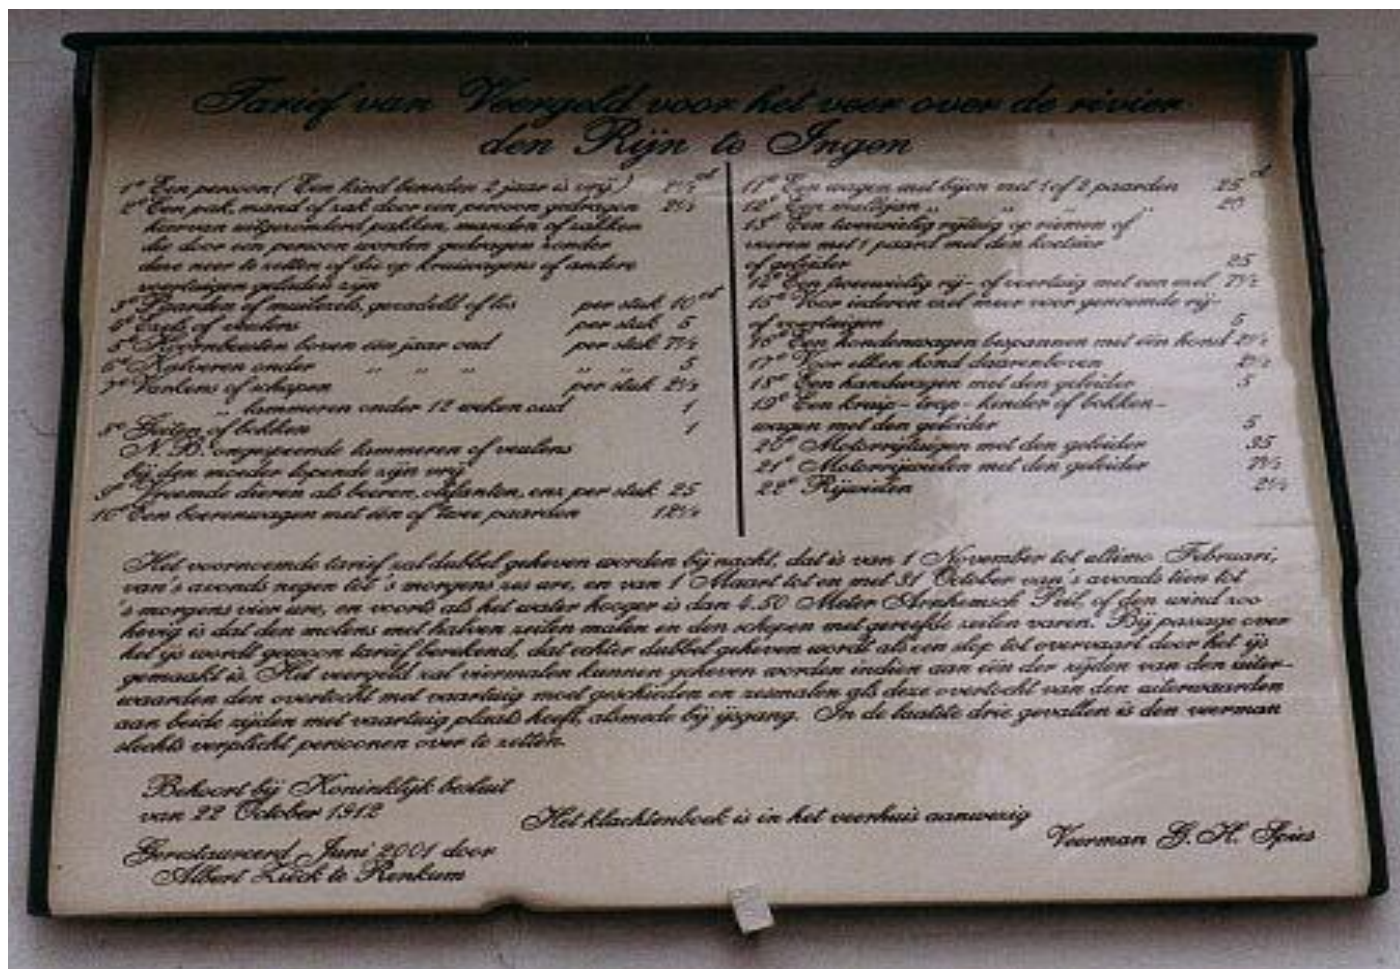 Tarief van Veergeld voor het veer over de rivier
den Rijn te Ingen
1e Een persoon (Een kind beneden 2 jaar is vrij) 2½ ct
2e Een pak, mand of zak door een persoon gedragen 2½
hiervan uitgezonderd pakken, manden of zakken
die door een persoon worden gedragen zonder
deze neer te zetten of die op kruiwagens of andere
voertuigen geladen zijn
3e Paarden of muilezels, gezadeld of los per stuk 10 ct
4e Ezels of veulens per stuk 5
5e Hoornbeesten boven een jaar oud per stuk 7½
6e Kalveren onder „ „ „ „ „ 5
7e Varkens of schapen per stuk 2½
„ lammeren onder 12 weken oud 1
8e Geiten of bokken 1
N.B. ongespeende lammeren of veulens
bij den moeder lopende zijn vrij
9e Vreemde dieren als beeren, olifanten, enz per stuk 25
10e Een boerenwagen met een of twee paarden 12½
11e Een wagen met bijen met 1 of 2 paarden 25 ct
12e Een „ „ „ „ 20
13e Een tweewielig rijtuig op riemen of
veeren met 1 paard met den koetsier
of geleider 25
14e Een tweewielig rij- of voertuig met een ezel 7½
15e Voor iederen ezel meer voor genoemde rij-
of voertuigen 5
16e Een hondenwagen bespannen met één hond 2½
17e Voor elken hond daarenboven 2½
18e Een handwagen met den geleider 5
19e Een kruip- trap- kinder of bokken-
wagen met den geleider 5
20e Motorrijtuigen met den geleider 35
21e Motorrijwielen met den geleider 7½
22e Rijwielen 2½
Het voornoemde tarief zal dubbel geheven worden bij nacht, dat is van 1 November tot ultimo Februari,
van 's avonds negen tot 's morgens zes ure, en van 1 Maart tot en met 31 October van 's avonds tien tot
's morgens vier ure, en voorts als het water hooger is dan 4.50 Meter Arnhemsch Peil, of den wind zoo
hevig is dat den molens met halven zeilen malen en den schepen met gereefde zeilen varen. Bij passage over
het ijs wordt gewoon tarief berekend, dat echter dubbel geheven wordt als een slop tot overvaart door het ijs
gemaakt is. Het veergeld zal viermalen kunnen geheven worden indien aan één der zijden van den uiter-
waarden den overtocht met vaartuig moet geschieden en zesmalen als deze overtocht van den uiterwaarden
aan beide zijden met vaartuig plaats heeft, alsmede bij ijsgang. In de laatste drie gevallen is den veerman
slechts verplicht persoonen over te zetten.
Behoort bij Koninklijk besluit
van 22 October 1912
Het klachtenboek is in het veerhuis aanwezig
Veerman G. H. Spies
Gerestaureerd Juni 2001 door
Albert Zieck te Renkum